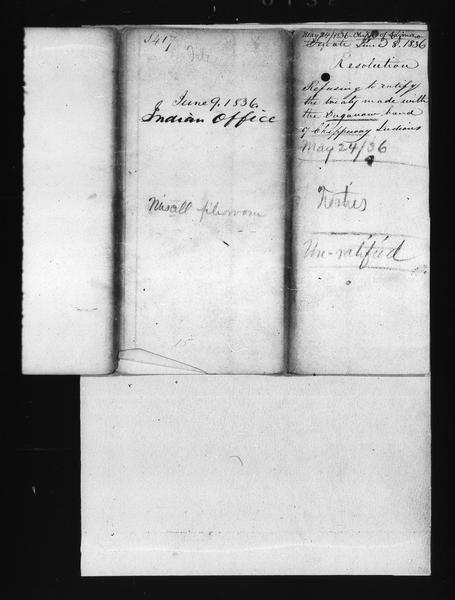 S417
File
June 9. 1836.
Indian Office
Misall
15
May 24/1836 Chipps of Saginaw
Senate June 8. 1836
Resolution
Refusing to ratify
the treaty made with
the Saganaw band
of Chippeway Indians
May 24/36
Treaties
Un-ratified